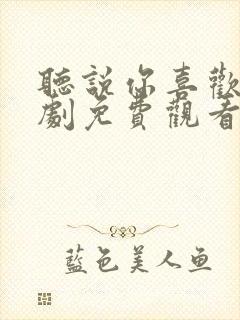 聽說你喜歡
劇免費觀看
藍色美人鱼